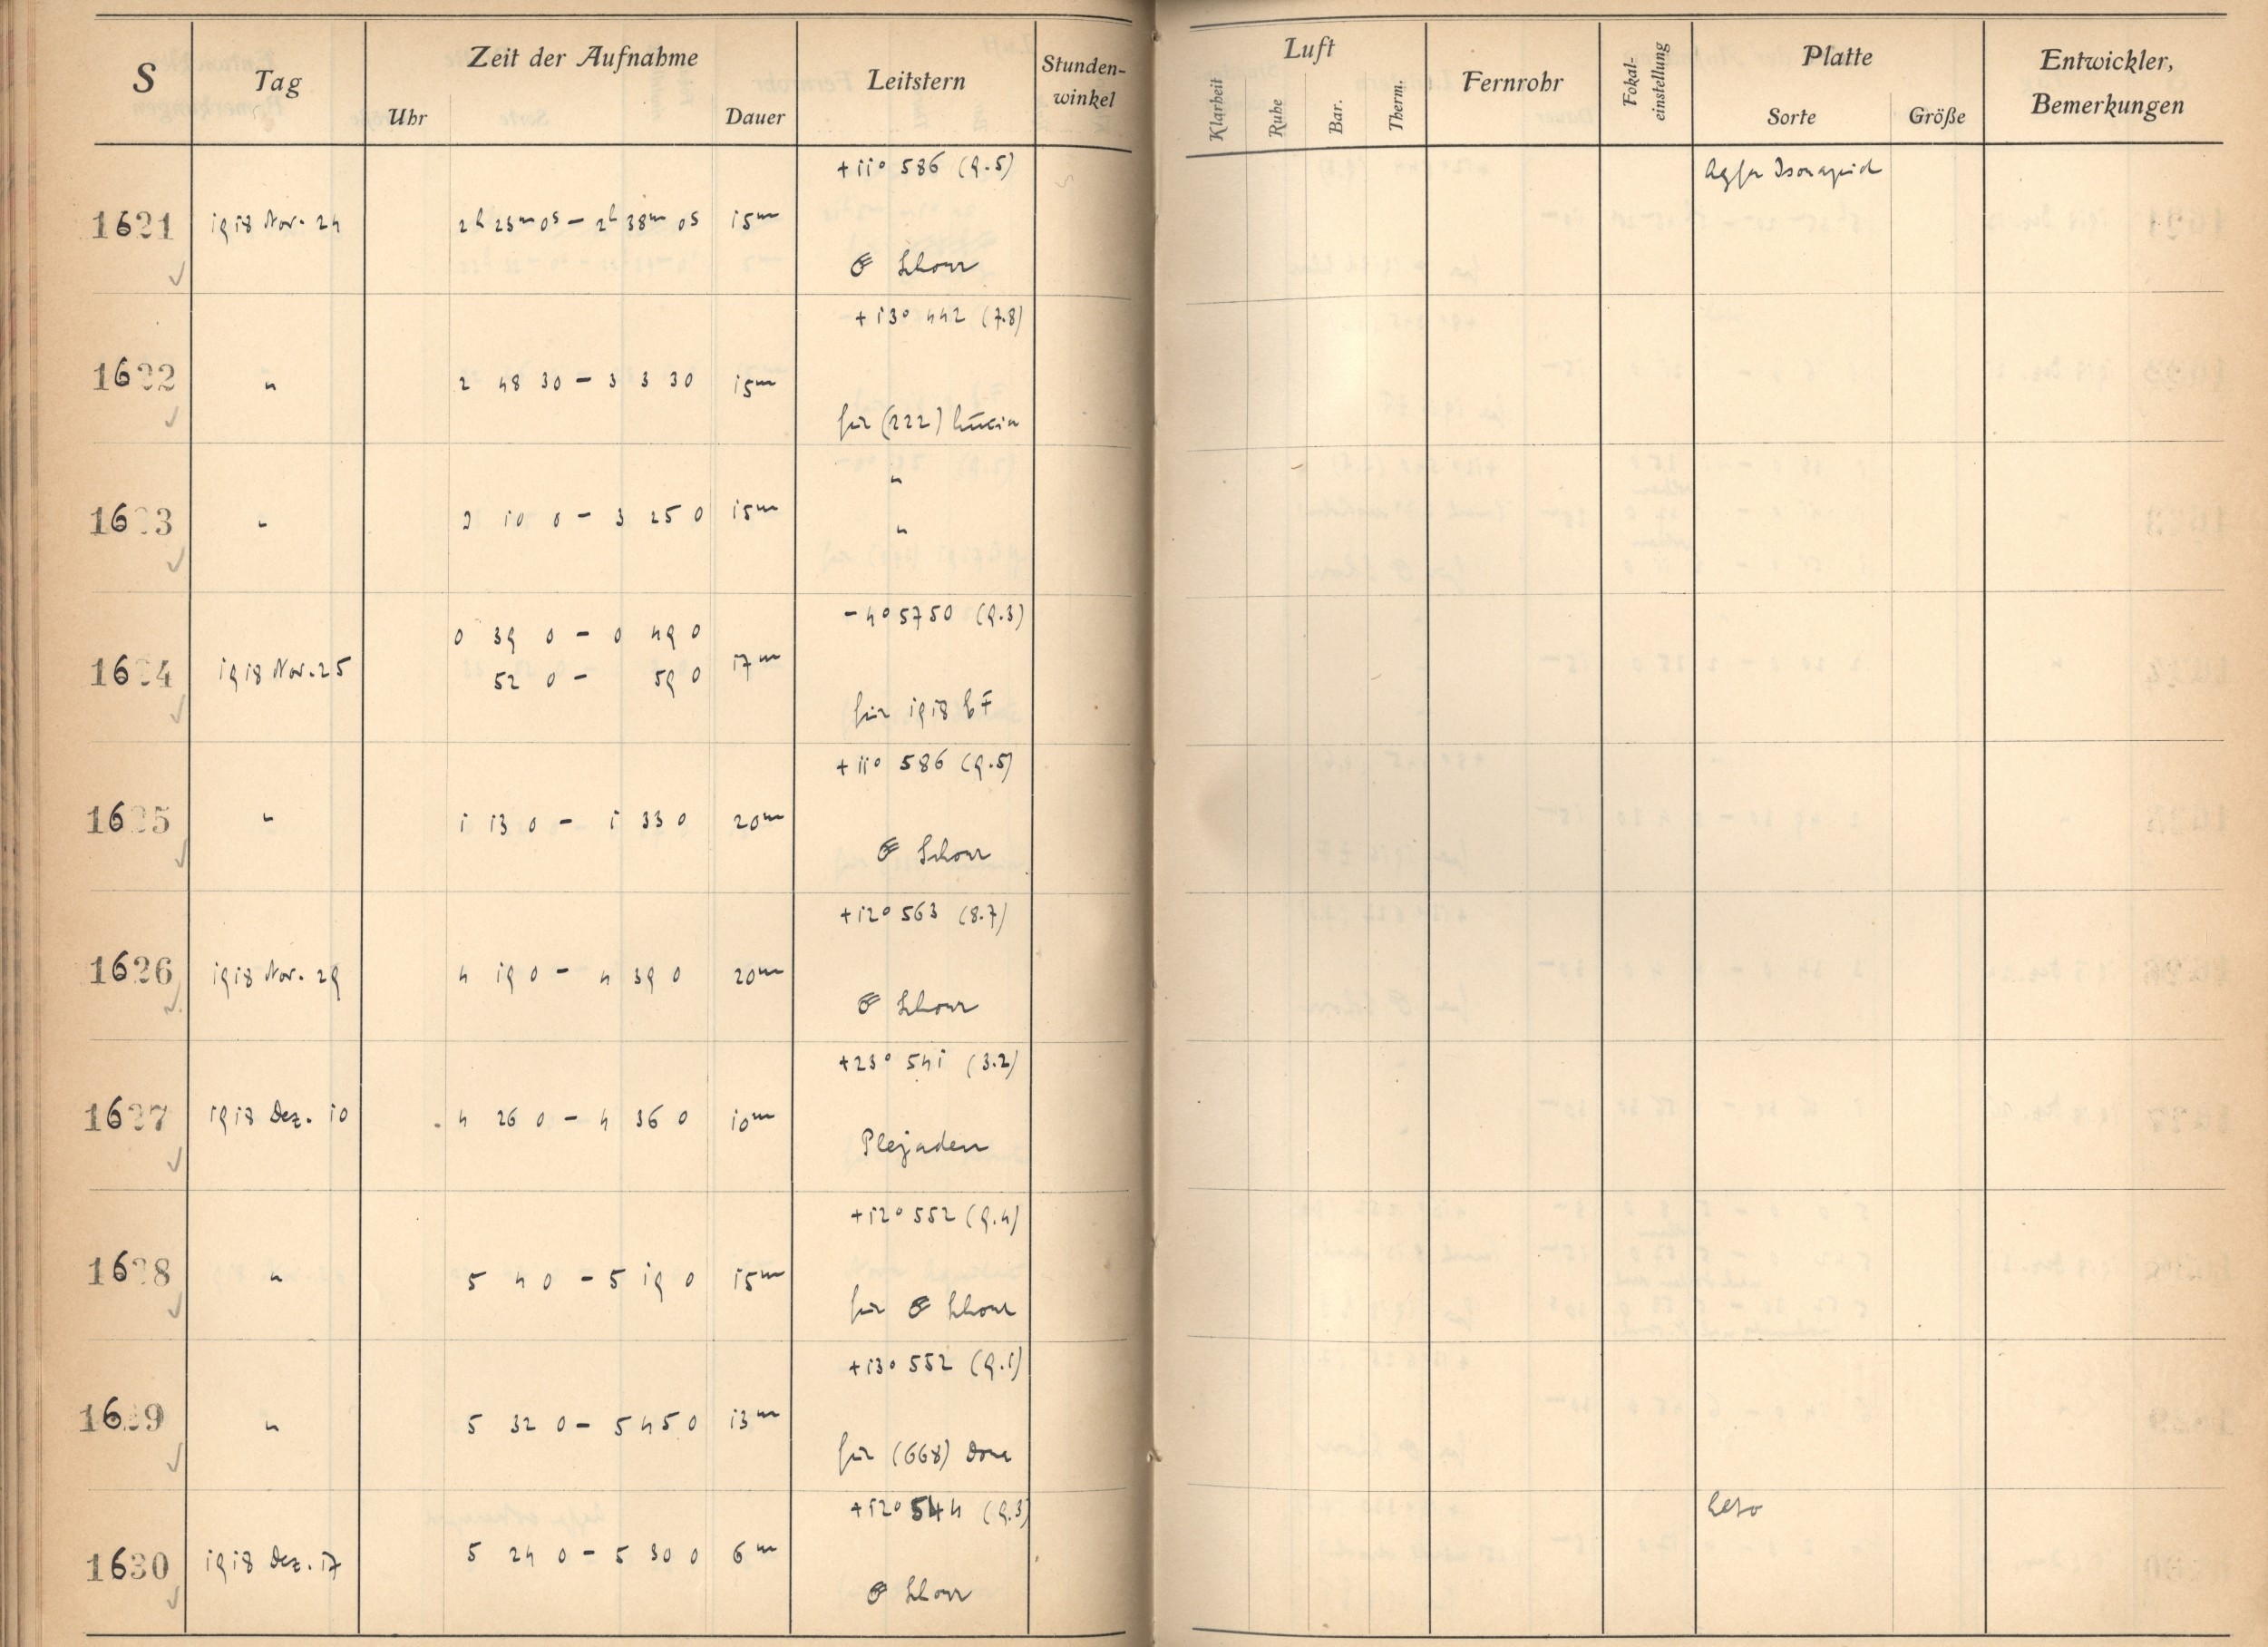 S Tag Zeit der Aufnahme Leitstern Stunden-winkel Luft Fernrohr Fokal-einstellung Platte Entwickler, Bemerkungen
Uhr Dauer Klarheit Ruhe Bar. Therm. Sorte Größe
+11° 586 (9.5) Agfa Isorapid
1621 1918 Nov. 24 2h 23m 0s – 2h 38m 0s 15m
☄ Schorr
+13° 442 (7.8)
1622 " 2 48 30 – 3 3 30 15m
für (222) Lucia
"
1623 " 3 10 0 – 3 25 0 15m
"
-4° 5750 (9.3)
0 39 0 – 0 49 0
1624 1918 Nov. 25 17m
52 0 – 59 0
für 1918
+11° 586 (9.5)
1625 " 1 13 0 – 1 33 0 20m
☄ Schorr
+12° 563 (8.7)
1626 1918 Nov. 29 4 19 0 – 4 39 0 20m
☄ Schorr
+23° 541 (3.2)
1627 1918 Dez. 10 4 26 0 – 4 36 0 10m
Plejaden
+12° 552 (9.4)
1628 " 5 4 0 – 5 19 0 15m
für ☄ Schorr
+13° 552 (9.1)
1629 " 5 32 0 – 5 45 0 13m
für (668) Dora
+12° 544 (9.3)
1630 1918 Dez. 17 5 24 0 – 5 30 0 6m
☄ Schorr